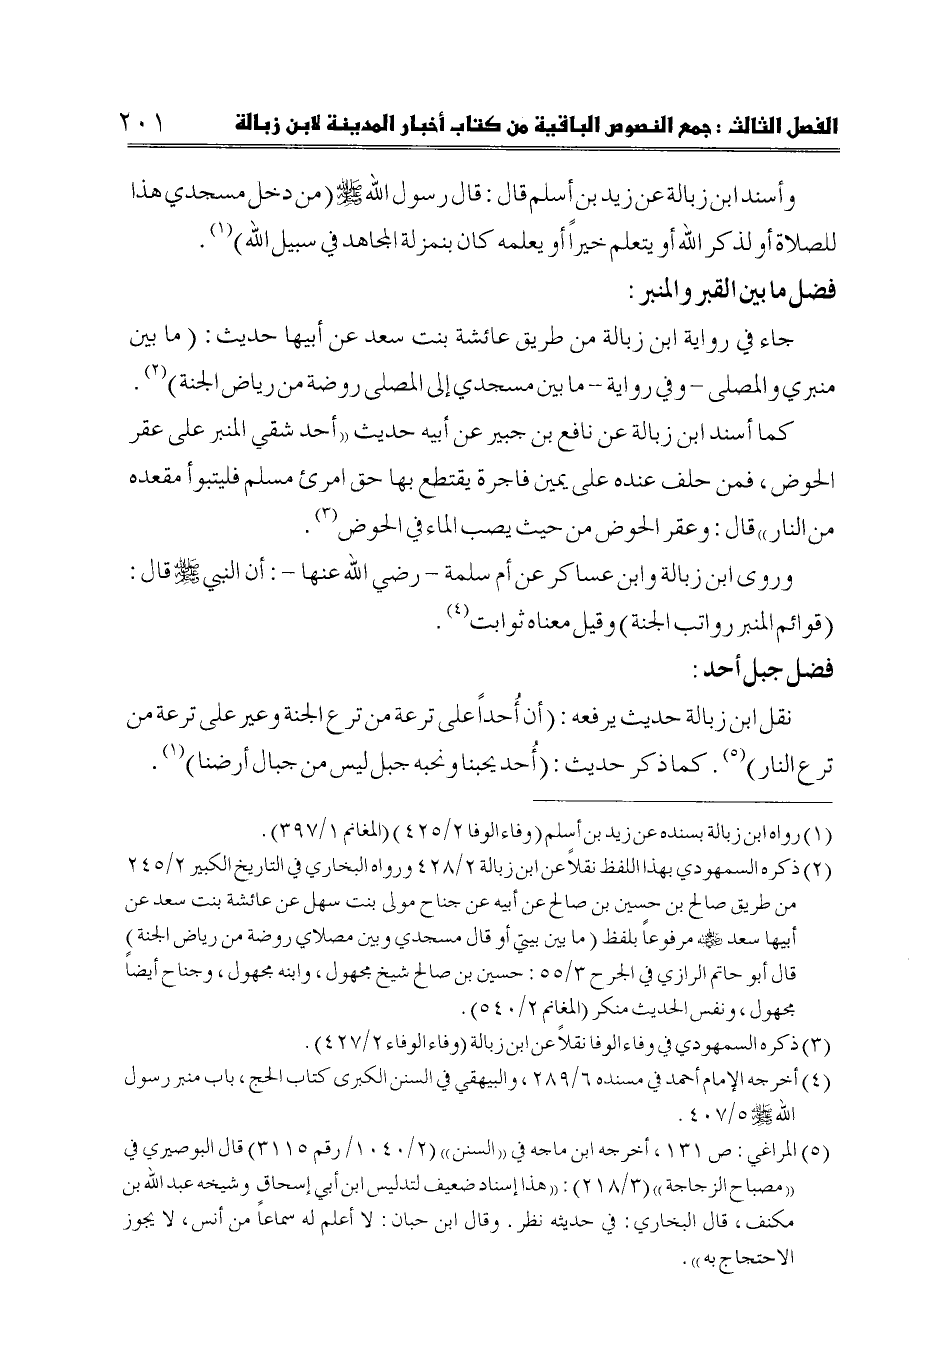 الفصل الثالث : جمع النصوص الباقية من كتاب أخبار المدينة لابن زبالة ٢٠١
وأسند ابن زبالة عن زيد بن أسلم قال : قال رسول الله ﷺ (من دخل مسجدي هذا
للصلاة أو لذكر الله أو يتعلم خيراً أو يعلمه كان بنمزلة المجاهد في سبيل الله)(١).
فضل ما بين القبر والمنبر :
جاء في رواية ابن زبالة من طريق عائشة بنت سعد عن أبيها حديث : ( ما بين
منبري والمصلى – وفي رواية – ما بين مسجدي إلى المصلى روضة من رياض الجنة)(٢).
كما أسند ابن زبالة عن نافع بن جبير عن أبيه حديث «أحد شقي المنبر على عقر
الحوض ، فمن حلف عنده على يمين فاجرة يقتطع بها حق امرئ مسلم فليتبوأ مقعده
من النار» قال : وعقر الحوض من حيث يصب الماء في الحوض(٣).
وروى ابن زبالة وابن عساكر عن أم سلمة – رضي الله عنها – : أن النبي ﷺ قال :
(قوائم المنبر رواتب الجنة) وقيل معناه ثوابت(٤).
فضل جبل أحد :
نقل ابن زبالة حديث يرفعه : (أن أُحداً على ترعة من ترع الجنة وعير على ترعة من
ترع النار)(٥). كما ذكر حديث : (أُحد يحبنا ونحبه جبل ليس من جبال أرضنا)(١).
(١) رواه ابن زبالة بسنده عن زيد بن أسلم (وفاء الوفا ٤٢٥/٢) (المغانم ٣٩٧/١).
(٢) ذكره السمهودي بهذا اللفظ نقلاً عن ابن زبالة ٤٢٨/٢ ورواه البخاري في التاريخ الكبير ٢٤٥/٢
من طريق صالح بن حسين بن صالح عن أبيه عن جناح مولى بنت سهل عن عائشة بنت سعد عن
أبيها سعد ﷺ مرفوعاً بلفظ ( ما بين بيتي أو قال مسجدي وبين مصلاي روضة من رياض الجنة )
قال أبو حاتم الرازي في الجرح ٥٥/٣ : حسين بن صالح شيخ مجهول ، وابنه مجهول ، وجناح أيضاً
مجهول ، ونفس الحديث منكر (المغانم ٥٤٠/٢).
(٣) ذكره السمهودي في وفاء الوفا نقلاً عن ابن زبالة (وفاء الوفاء ٤٢٧/٢).
(٤) أخرجه الإمام أحمد في مسنده ٢٨٩/٦ ، والبيهقي في السنن الكبرى كتاب الحج ، باب منبر رسول
الله ﷺ ٤٠٧/٥ .
(٥) المراغي : ص ١٣١ ، أخرجه ابن ماجه في «السنن» (١٠٤٠/٢/ رقم ٣١١٥) قال البوصيري في
«مصباح الزجاجة» (٢١٨/٣) : «هذا إسناد ضعيف لتدليس ابن أبي إسحاق وشيخه عبد الله بن
مكنف ، قال البخاري : في حديثه نظر . وقال ابن حبان : لا أعلم له سماعاً من أنس ، لا يجوز
الاحتجاج به» .